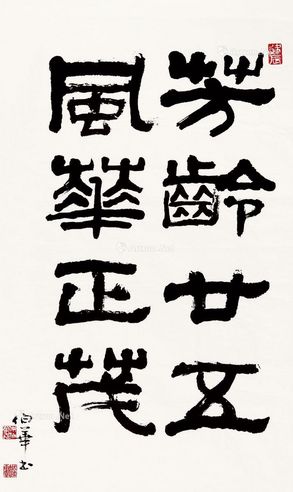 芳齡廿五
風華正茂
伯華书